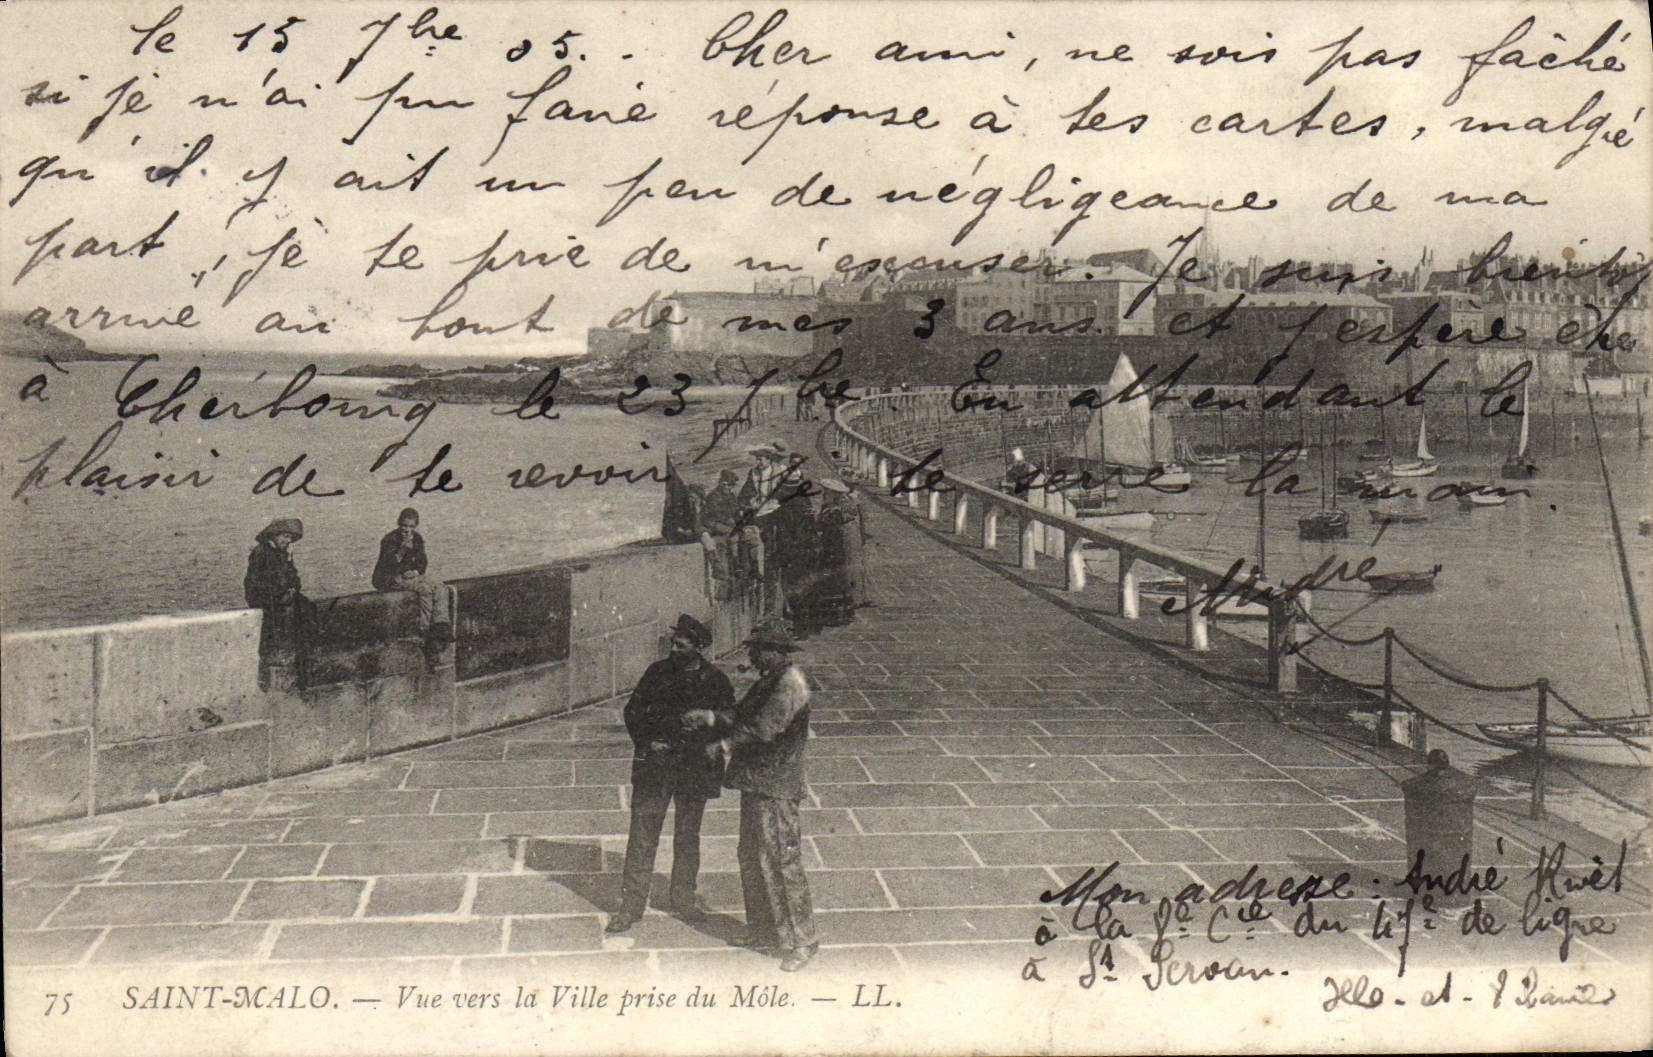 le 15 7bre 05. - Cher ami, ne sois pas fâché
si je n'ai pu faire réponse à tes cartes, malgré
qu'il y ait un peu de négligeance de ma
part, je te prie de m'escuser. Je suis bientôt
arrivé au bout de mes 3 ans et j'espère être
à Cherbourg le 23 7bre. En attendant le
plaisir de te revoir je te serre la main.
André
Mon adresse : André
à la 8e Cie du 47e de ligne
à St Servan.
Ille-et-
75 SAINT-MALO. — Vue vers la Ville prise du Môle. — LL.